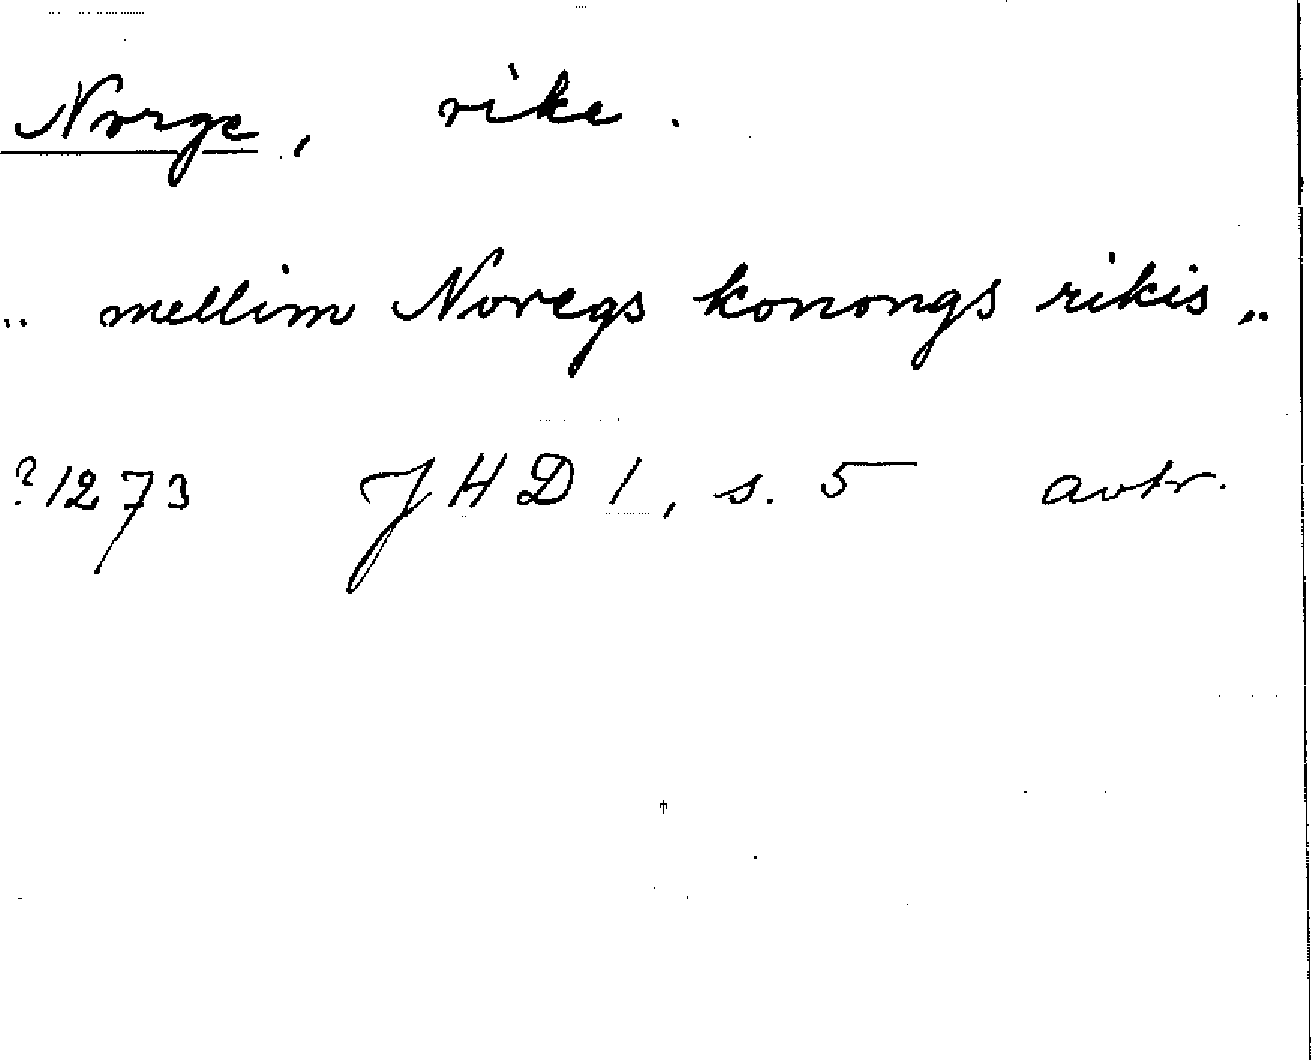 Norge, rike.
.. mellim Noregs konongs rikis ..
?1273 JHD 1, s. 5 avtr.